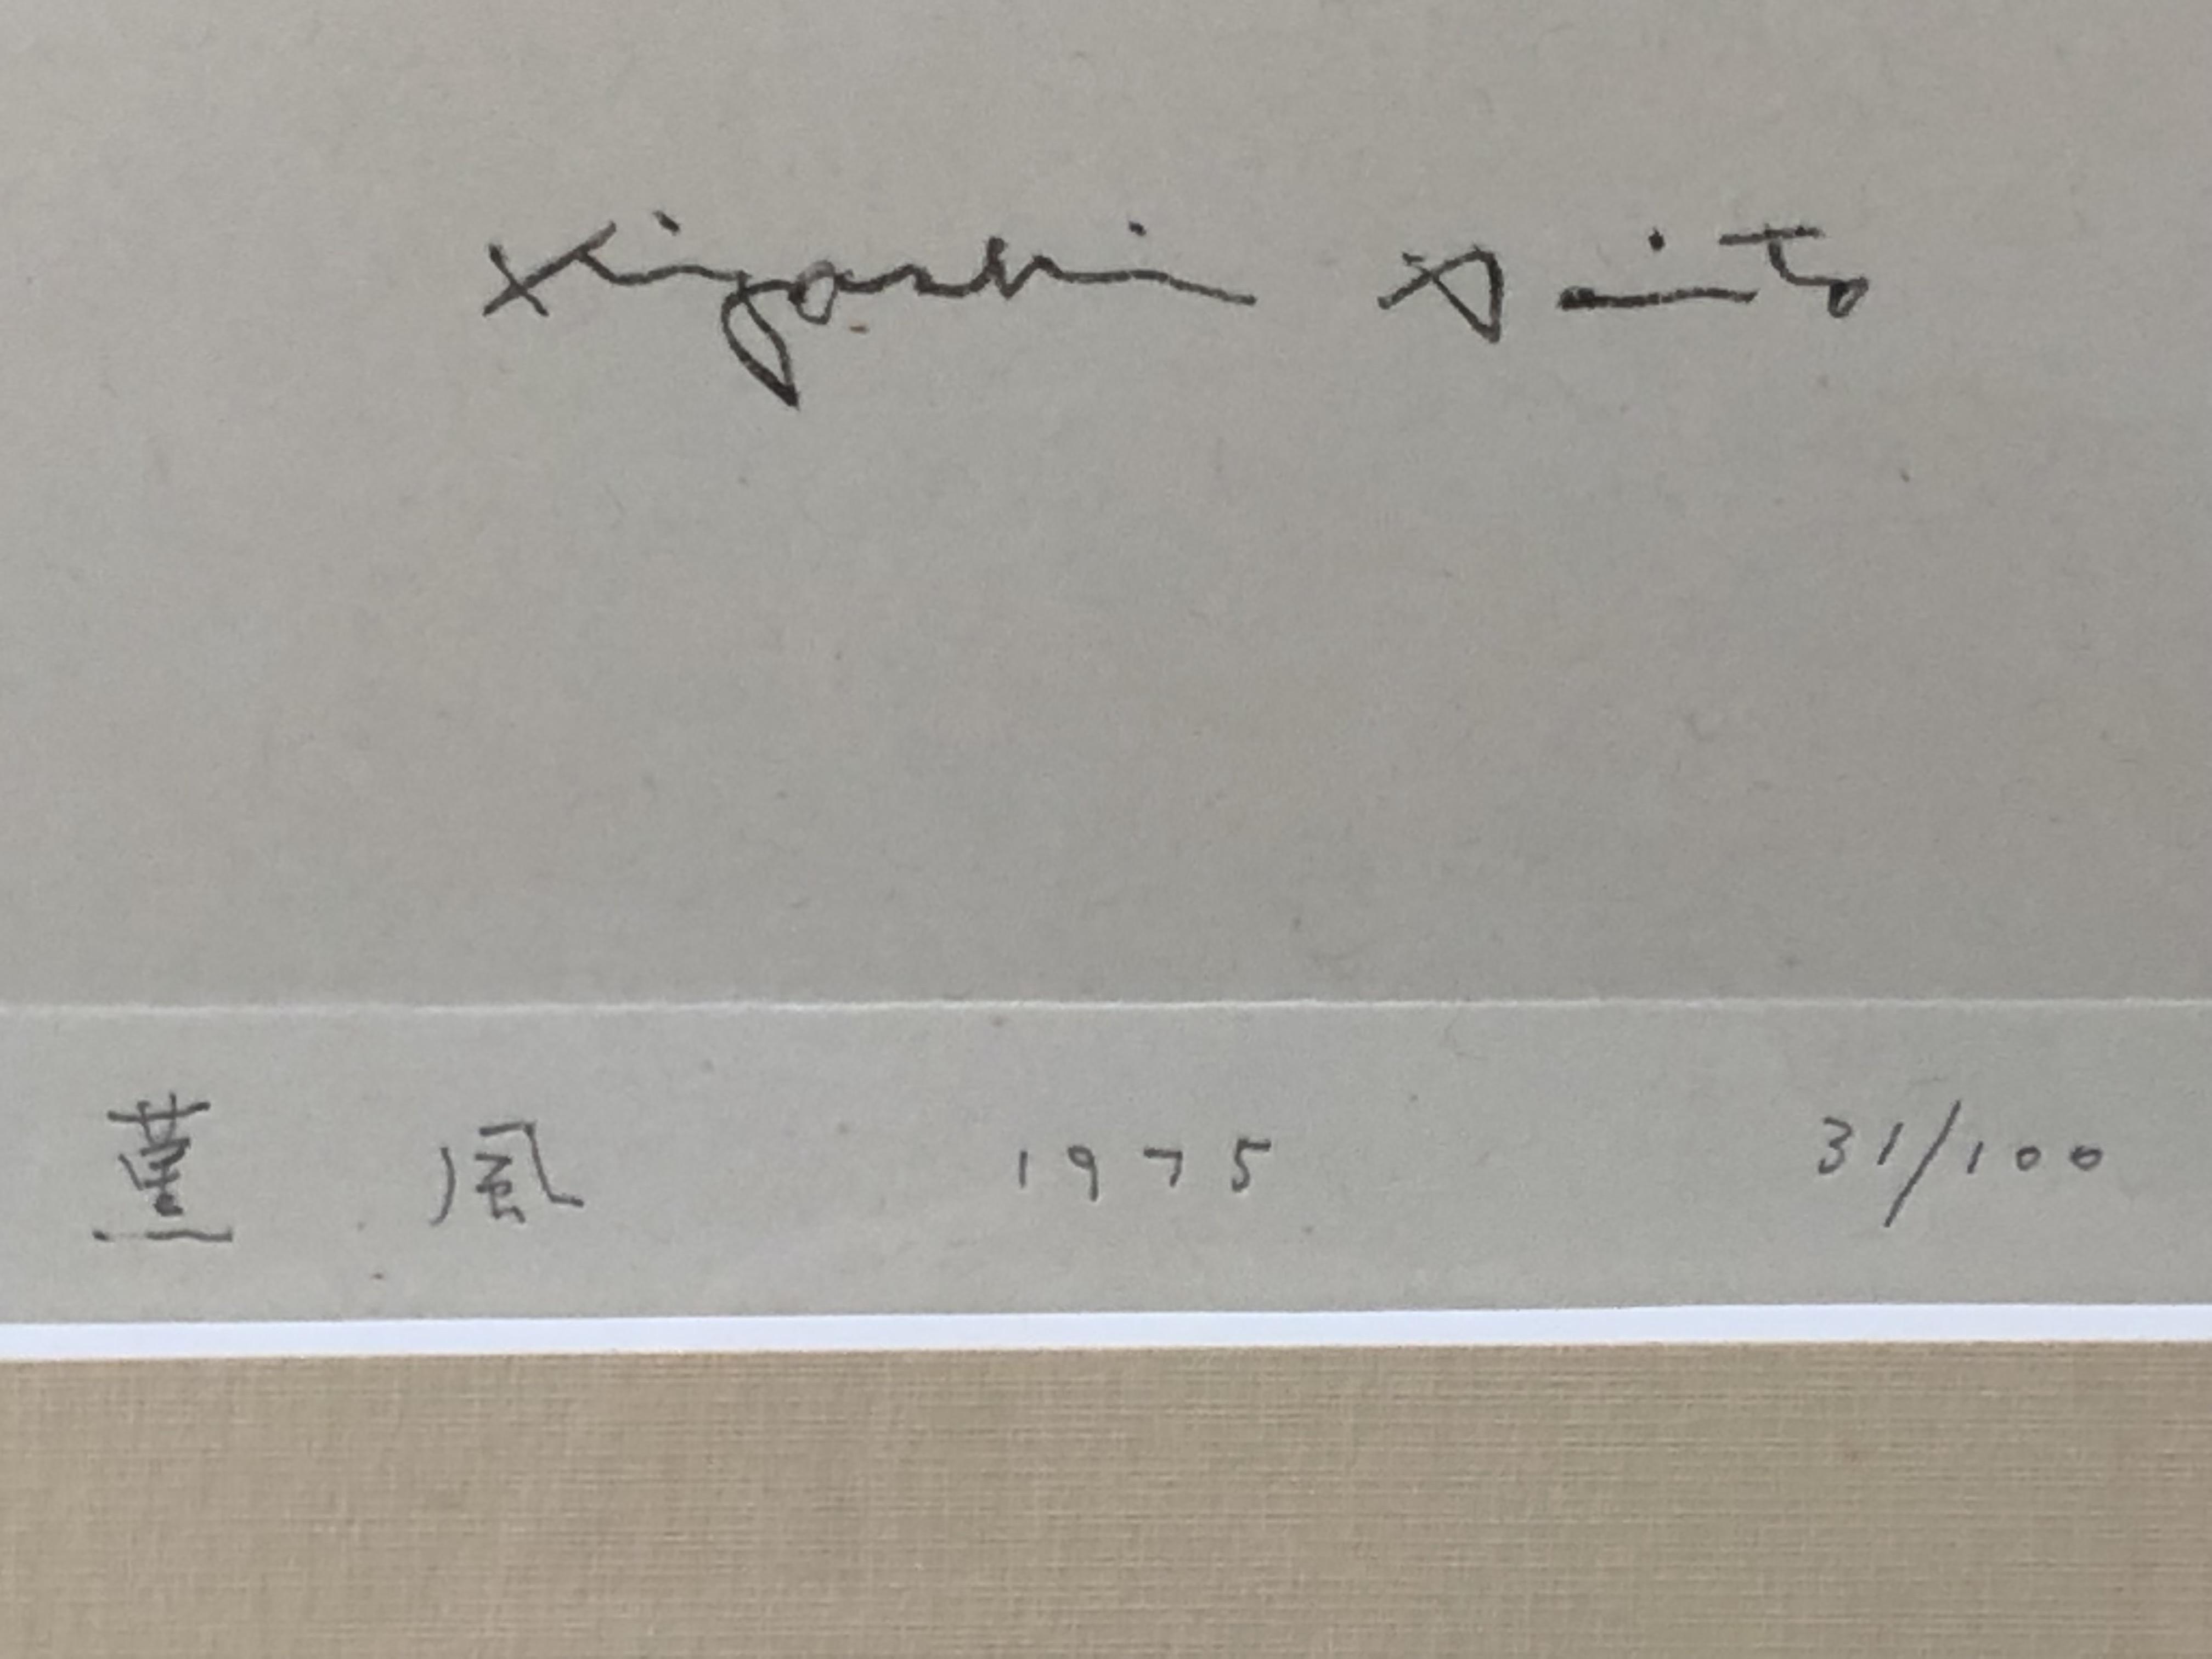 Kiyoshi Saito
薫風 1975 31/100